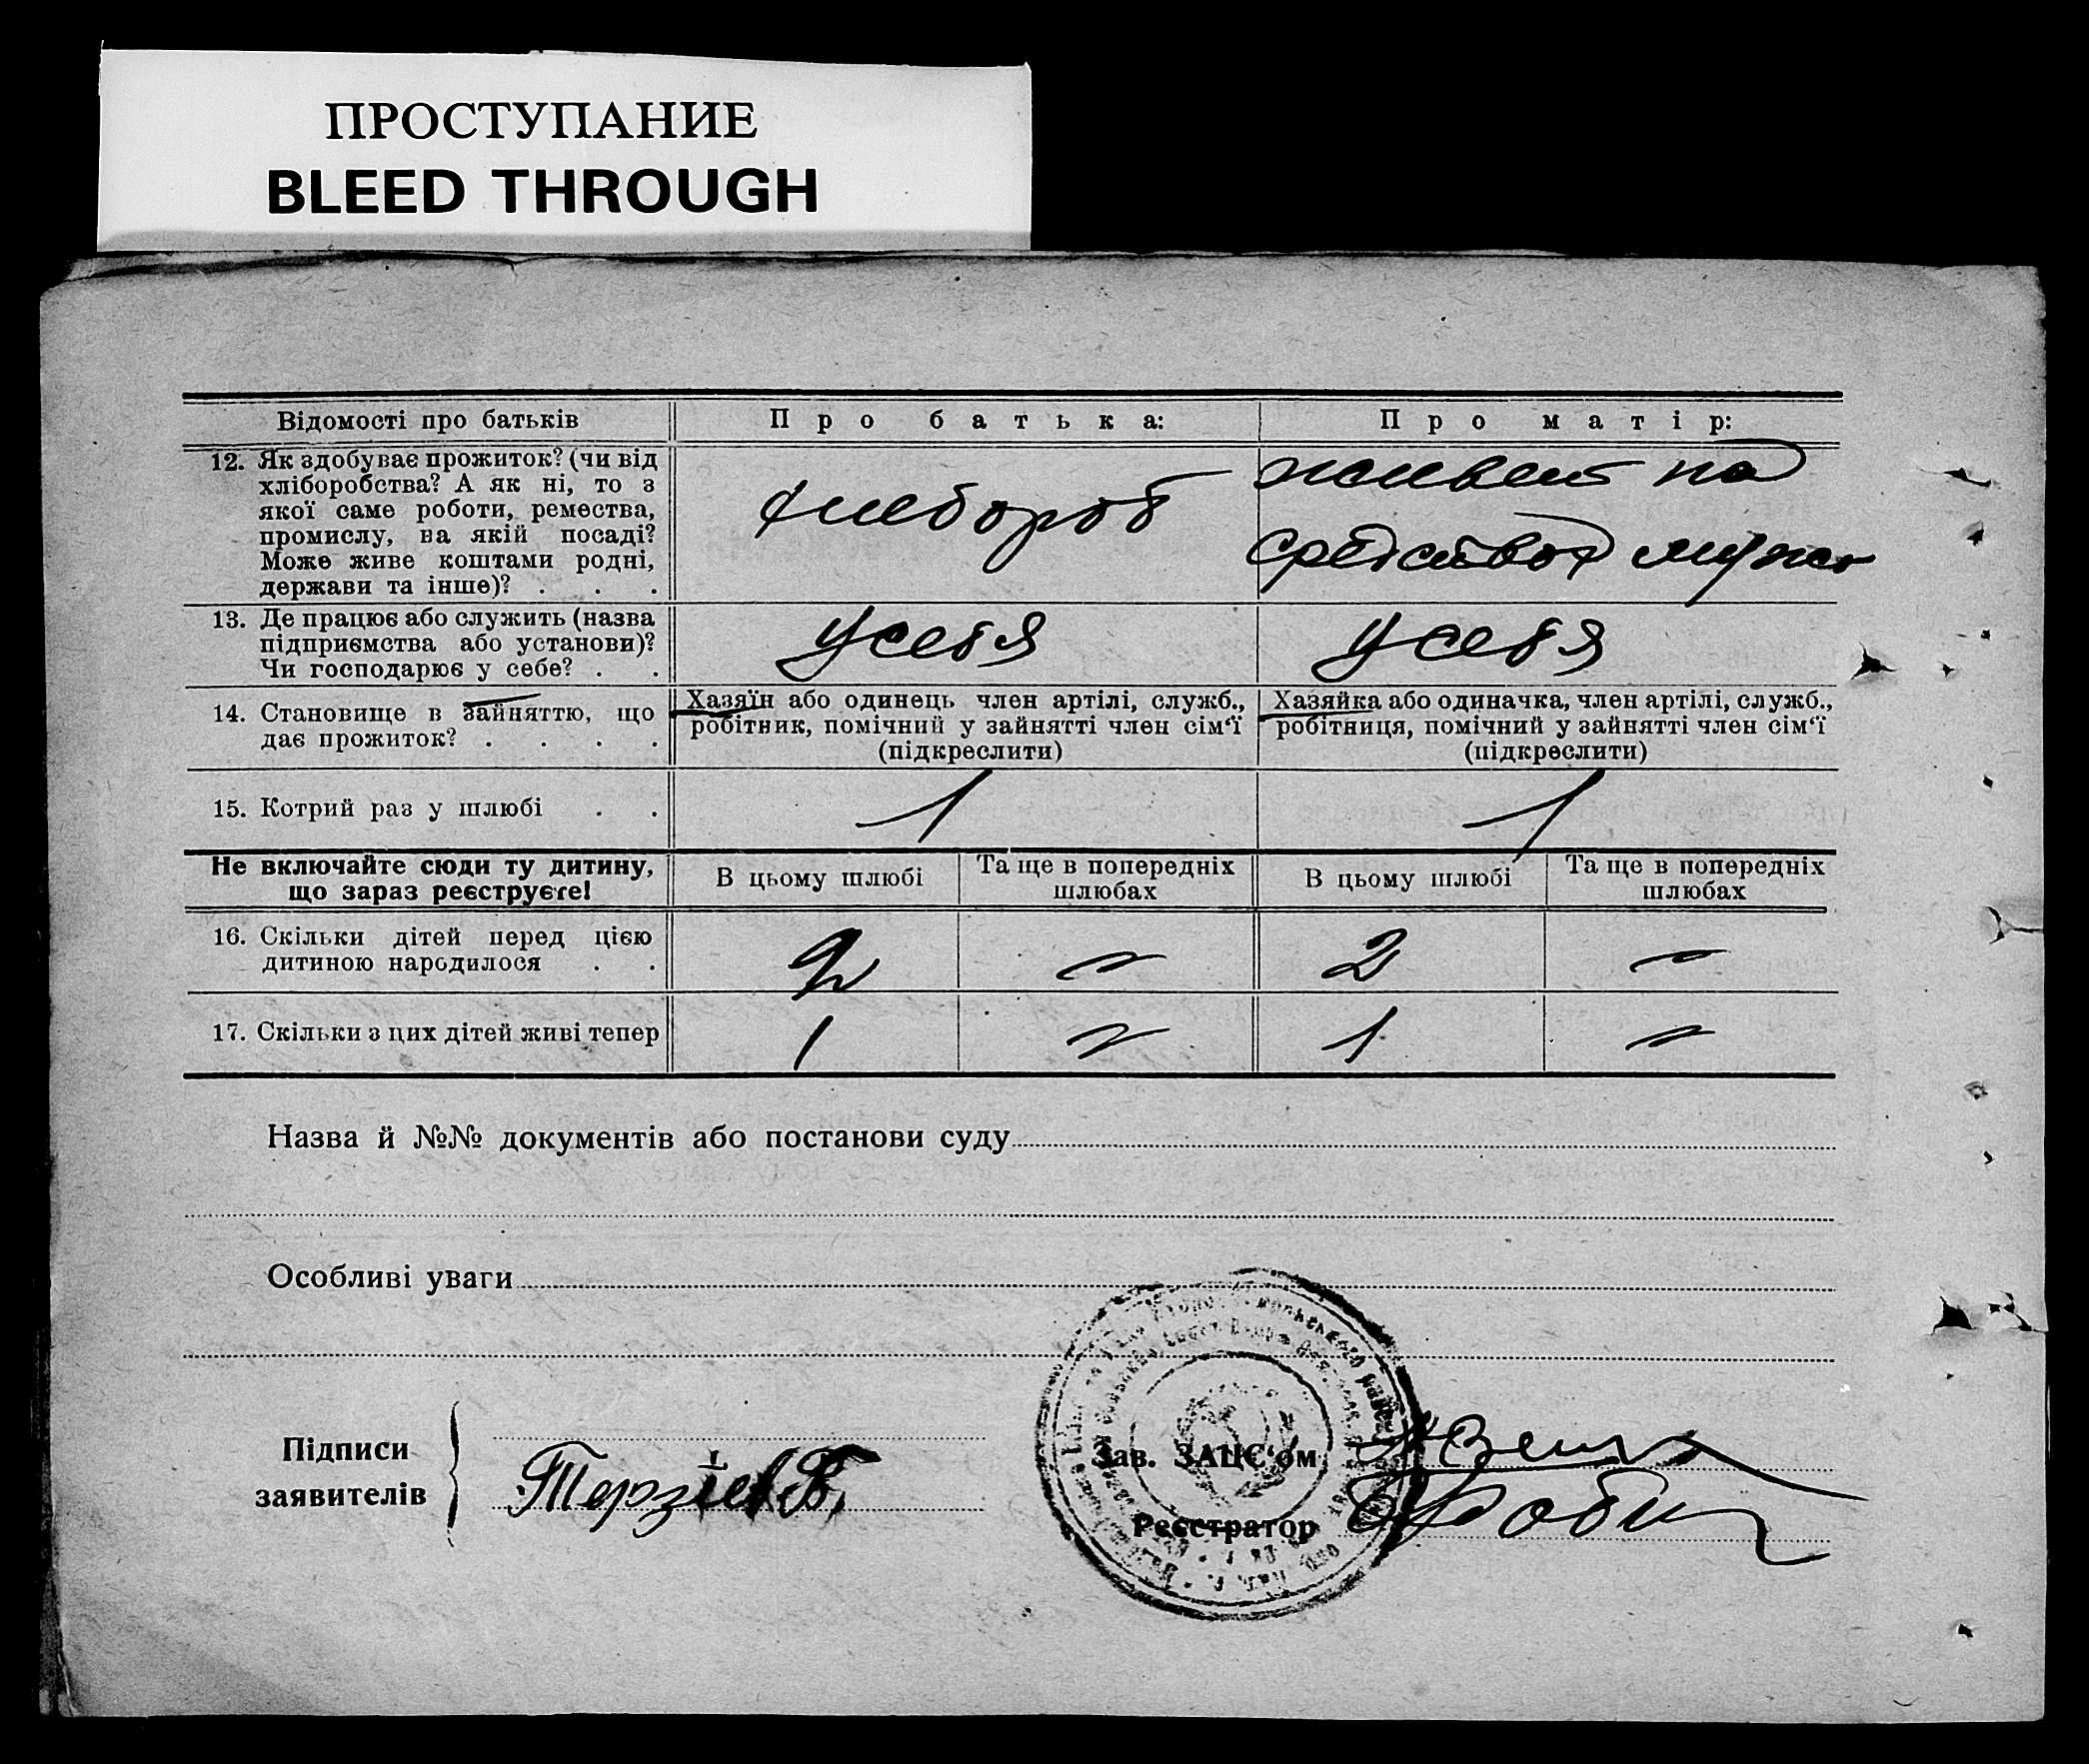 ПРОСТУПАНИЕ
BLEED THROUGH
Відомості про батьків
Про батька:
Про матір:
12. Як здобуває прожиток? (чи від
хліборобства? А як ні, то з
якої саме роботи, ремества,
промислу, на якій посаді?
Може живе коштами родні,
держави та інше)? . . .
хлебороб
живет на
средствах мужа
13. Де працює або служить (назва
підприємства або установи)?
Чи господарює у себе? . .
у себя
у себя
14. Становище в зайняттю, що
дає прожиток? . . . .
Хазяїн або одинець член артілі, служб.,
робітник, помічний у зайнятті член сім'ї
(підкреслити)
Хазяйка або одиначка, член артілі, служб.,
робітниця, помічний у зайнятті член сім'ї
(підкреслити)
15. Котрий раз у шлюбі . .
1
1
Не включайте сюди ту дитину,
що зараз реєструєте!
В цьому шлюбі
Та ще в попередніх
шлюбах
В цьому шлюбі
Та ще в попередніх
шлюбах
16. Скільки дітей перед цією
дитиною народилося . .
2
–
2
–
17. Скільки з цих дітей живі тепер
1
–
1
–
Назва й №№ документів або постанови суду
Особливі уваги
Підписи
заявителів
Терзіев В.
Зав. ЗАЦС'ом
Реєстратор